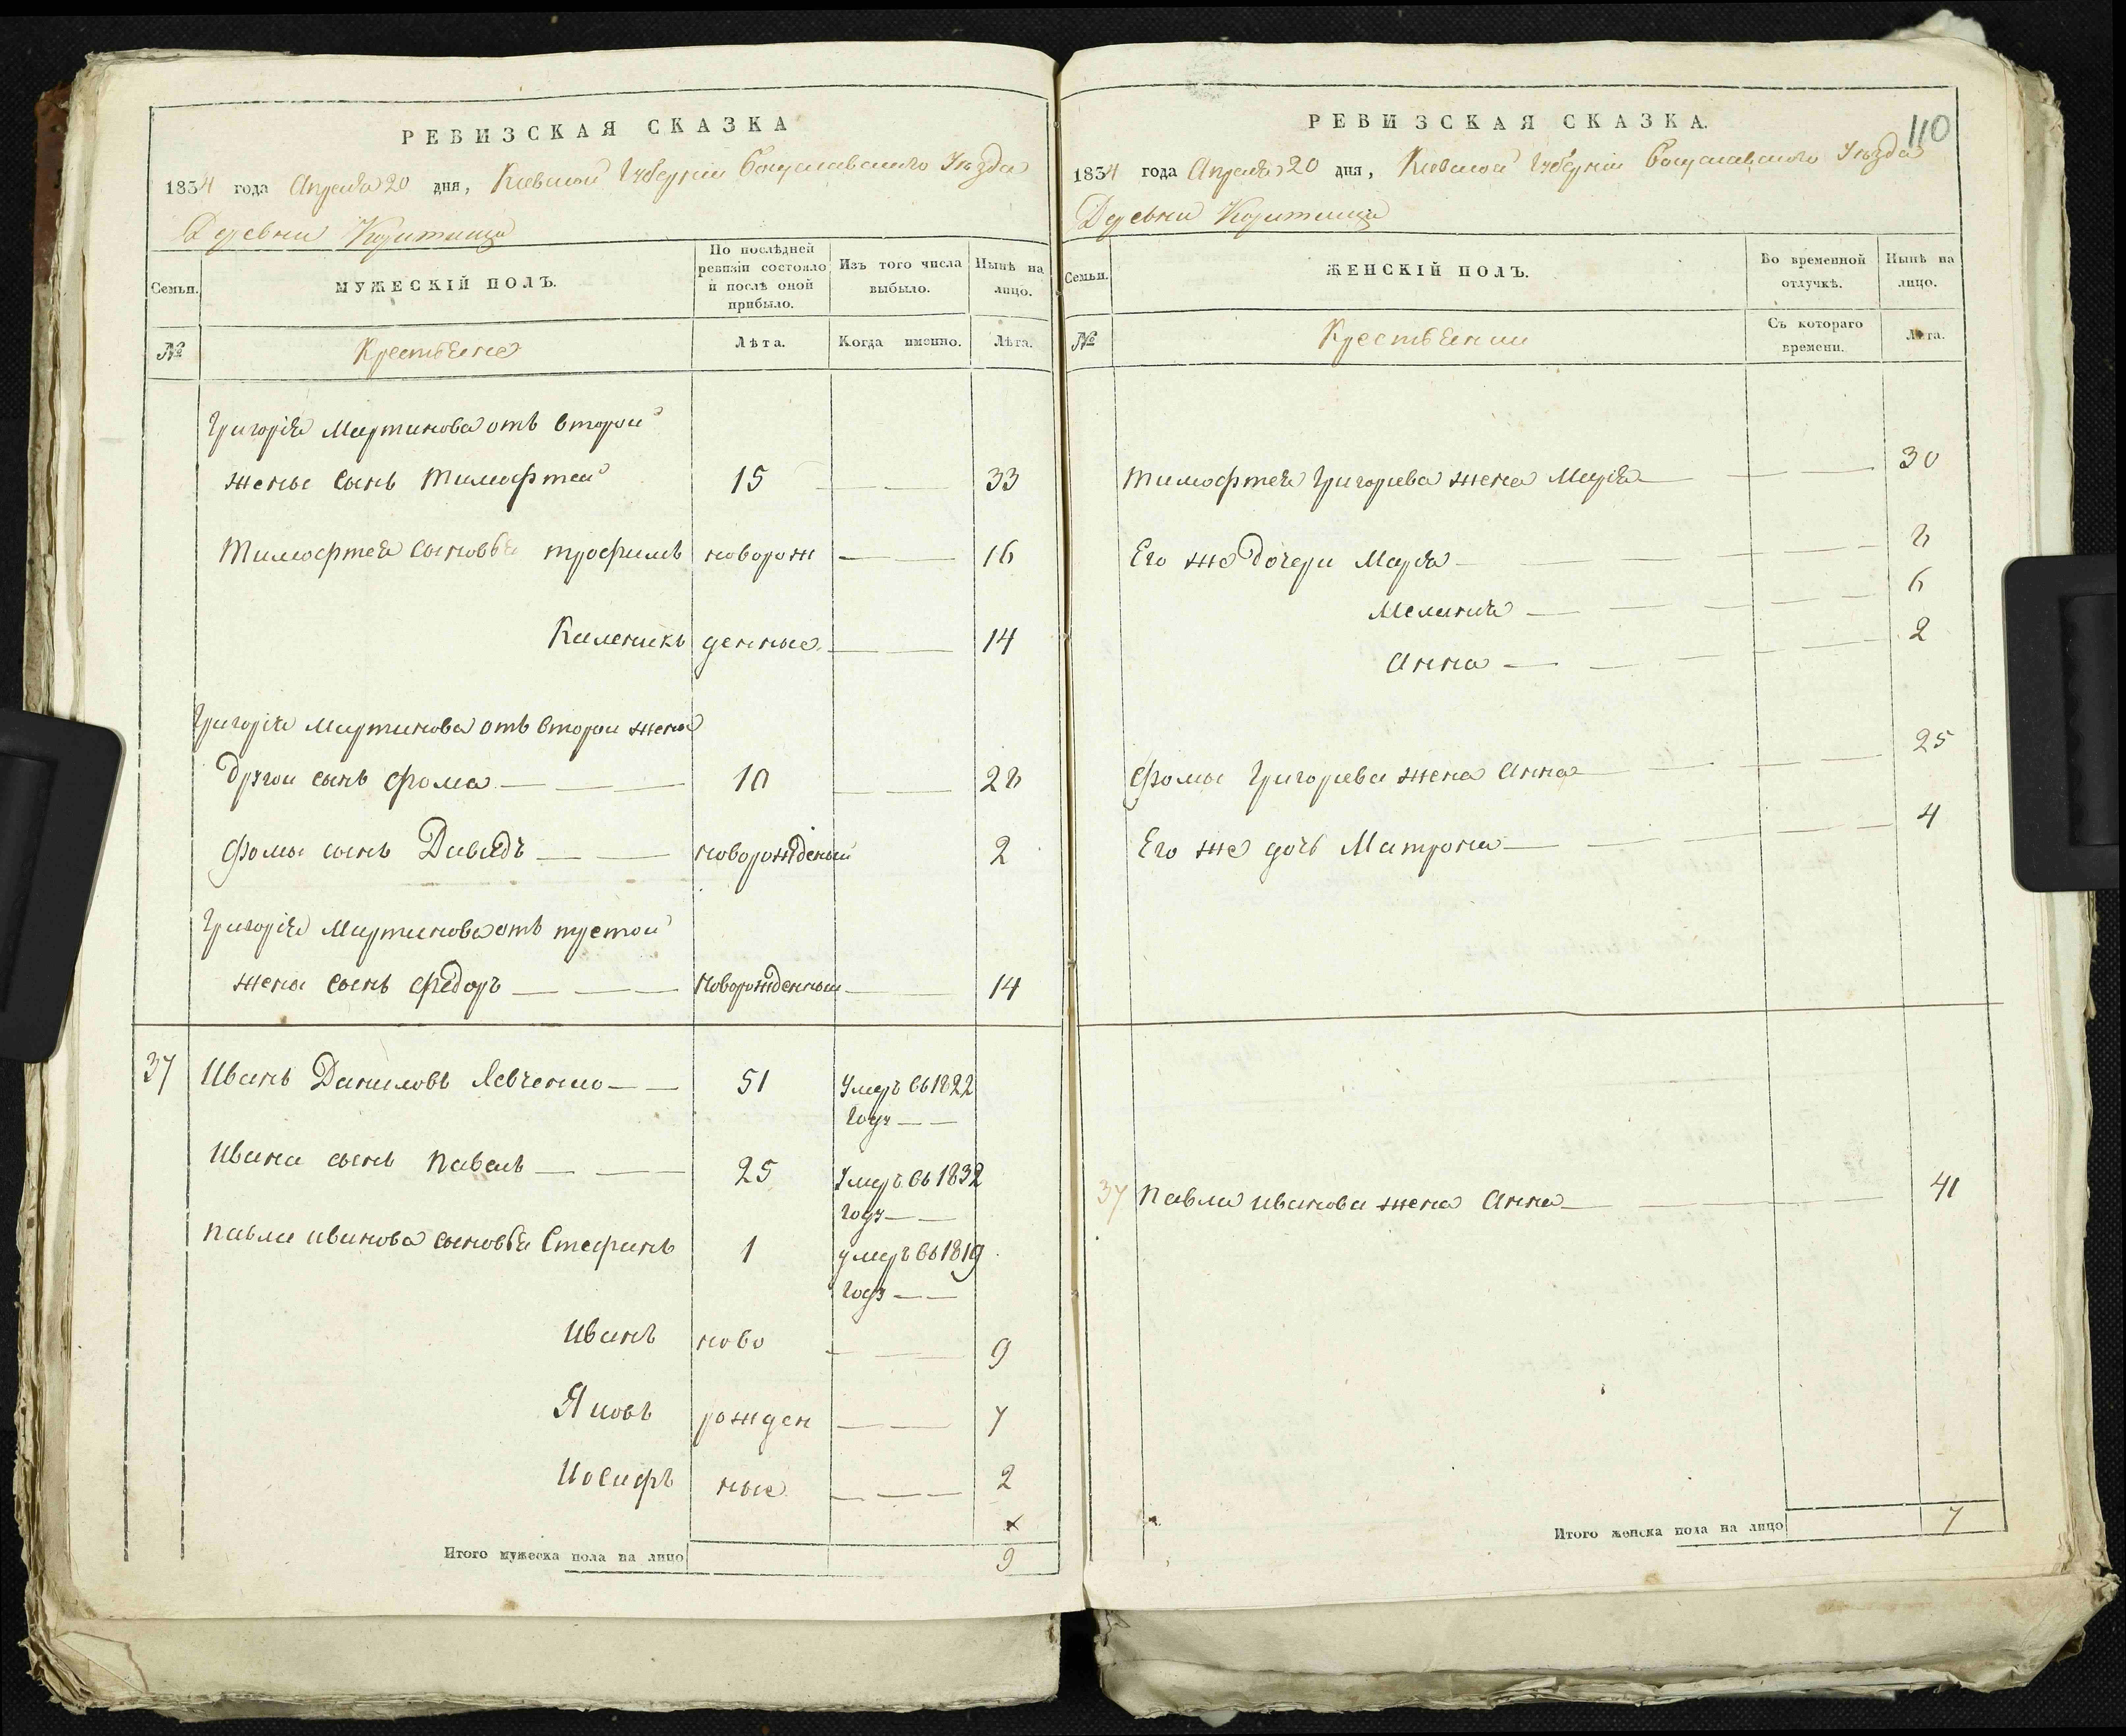 РЕВИЗСКАЯ СКАЗКА
1834 года Апреля 20 дня, Киевской Губернии Богуславского Уезда
Деревни Коритища
Семьи.
МУЖЕСКІЙ ПОЛЪ.
По послѣдней ревизіи состояло и послѣ оной прибыло.
Изъ того числа выбыло.
Нынѣ на лицо.
№
Крестьяне
Лѣта.
Когда именно.
Лѣта.
Григорія Мартинова отъ второй
жены сынъ Тимофтей 15 — — 33
Тимофтея сыновья Трофимъ новорож — — 16
Каленикъ денные — — 14
Григорія Мартинова отъ второй жены
другой сынъ Фома — — — 10 — — 28
Фомы сынъ Давидъ — — новорожденый 2
Григорія Мартинова отъ третой
жены сынъ Федоръ — — — новорожденный — — 14
37 Иванъ Даниловъ Левченко — — 51 Умеръ въ 1822
году — —
Ивана сынъ Павелъ — — — 25 Умеръ въ 1832
году — —
Павла Иванова сыновья Стефанъ 1 умеръ въ 1819
году — —
Иванъ ново — — 9
Яковъ рожден — — 7
Иосифъ ные — — — 2
x
Итого мужеска пола на лицо 9
110
РЕВИЗСКАЯ СКАЗКА.
1834 года Апреля 20 дня, Киевской Губернии Богуславского Уезда
Деревни Коритища
Семьи.
ЖЕНСКІЙ ПОЛЪ.
Во временной отлучкѣ.
Нынѣ на лицо.
№
Крестьянки
Съ котораго времени.
Лѣта.
Тимофтея Григорева жена Марія — — — 30
Его же дочери Марія — — — — — 8
Мелания — — — — — 6
Анна — — — — — 2
Фомы Григорева жена Анна — — — — 25
Его же дочь Матрона — — — — — 4
37 Павла Иванова жена Анна — — — — 41
Итого женска пола на лицо 7